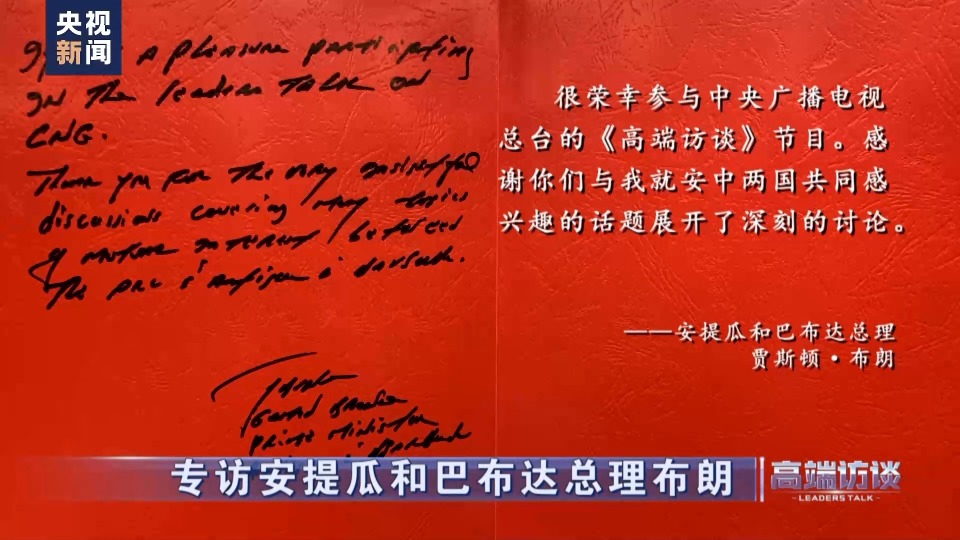 央视
新闻
It is a pleasure participating
in the leaders Talk on
CNG.
Thank you for the very insightful
discussions covering many topics
of mutual interest between
The PRC & Antigua & Barbuda.
Gaston Browne
Prime Minister
很荣幸参与中央广播电视
总台的《高端访谈》节目。感
谢你们与我就安中两国共同感
兴趣的话题展开了深刻的讨论。
——安提瓜和巴布达总理
贾斯顿·布朗
专访安提瓜和巴布达总理布朗
高端访谈
LEADERS TALK